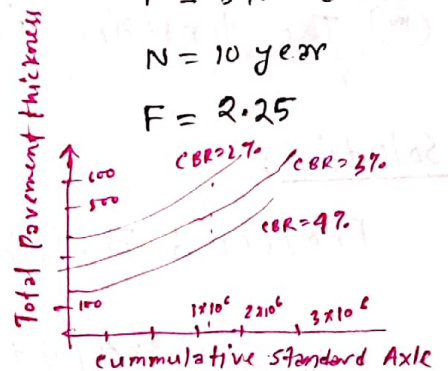 N = 10 year
F = 2.25
Total Pavement thickness
600
500
100
CBR=2%
CBR=3%
CBR=4%
1x10⁶
2x10⁶
3x10⁶
cummulative standard Axle